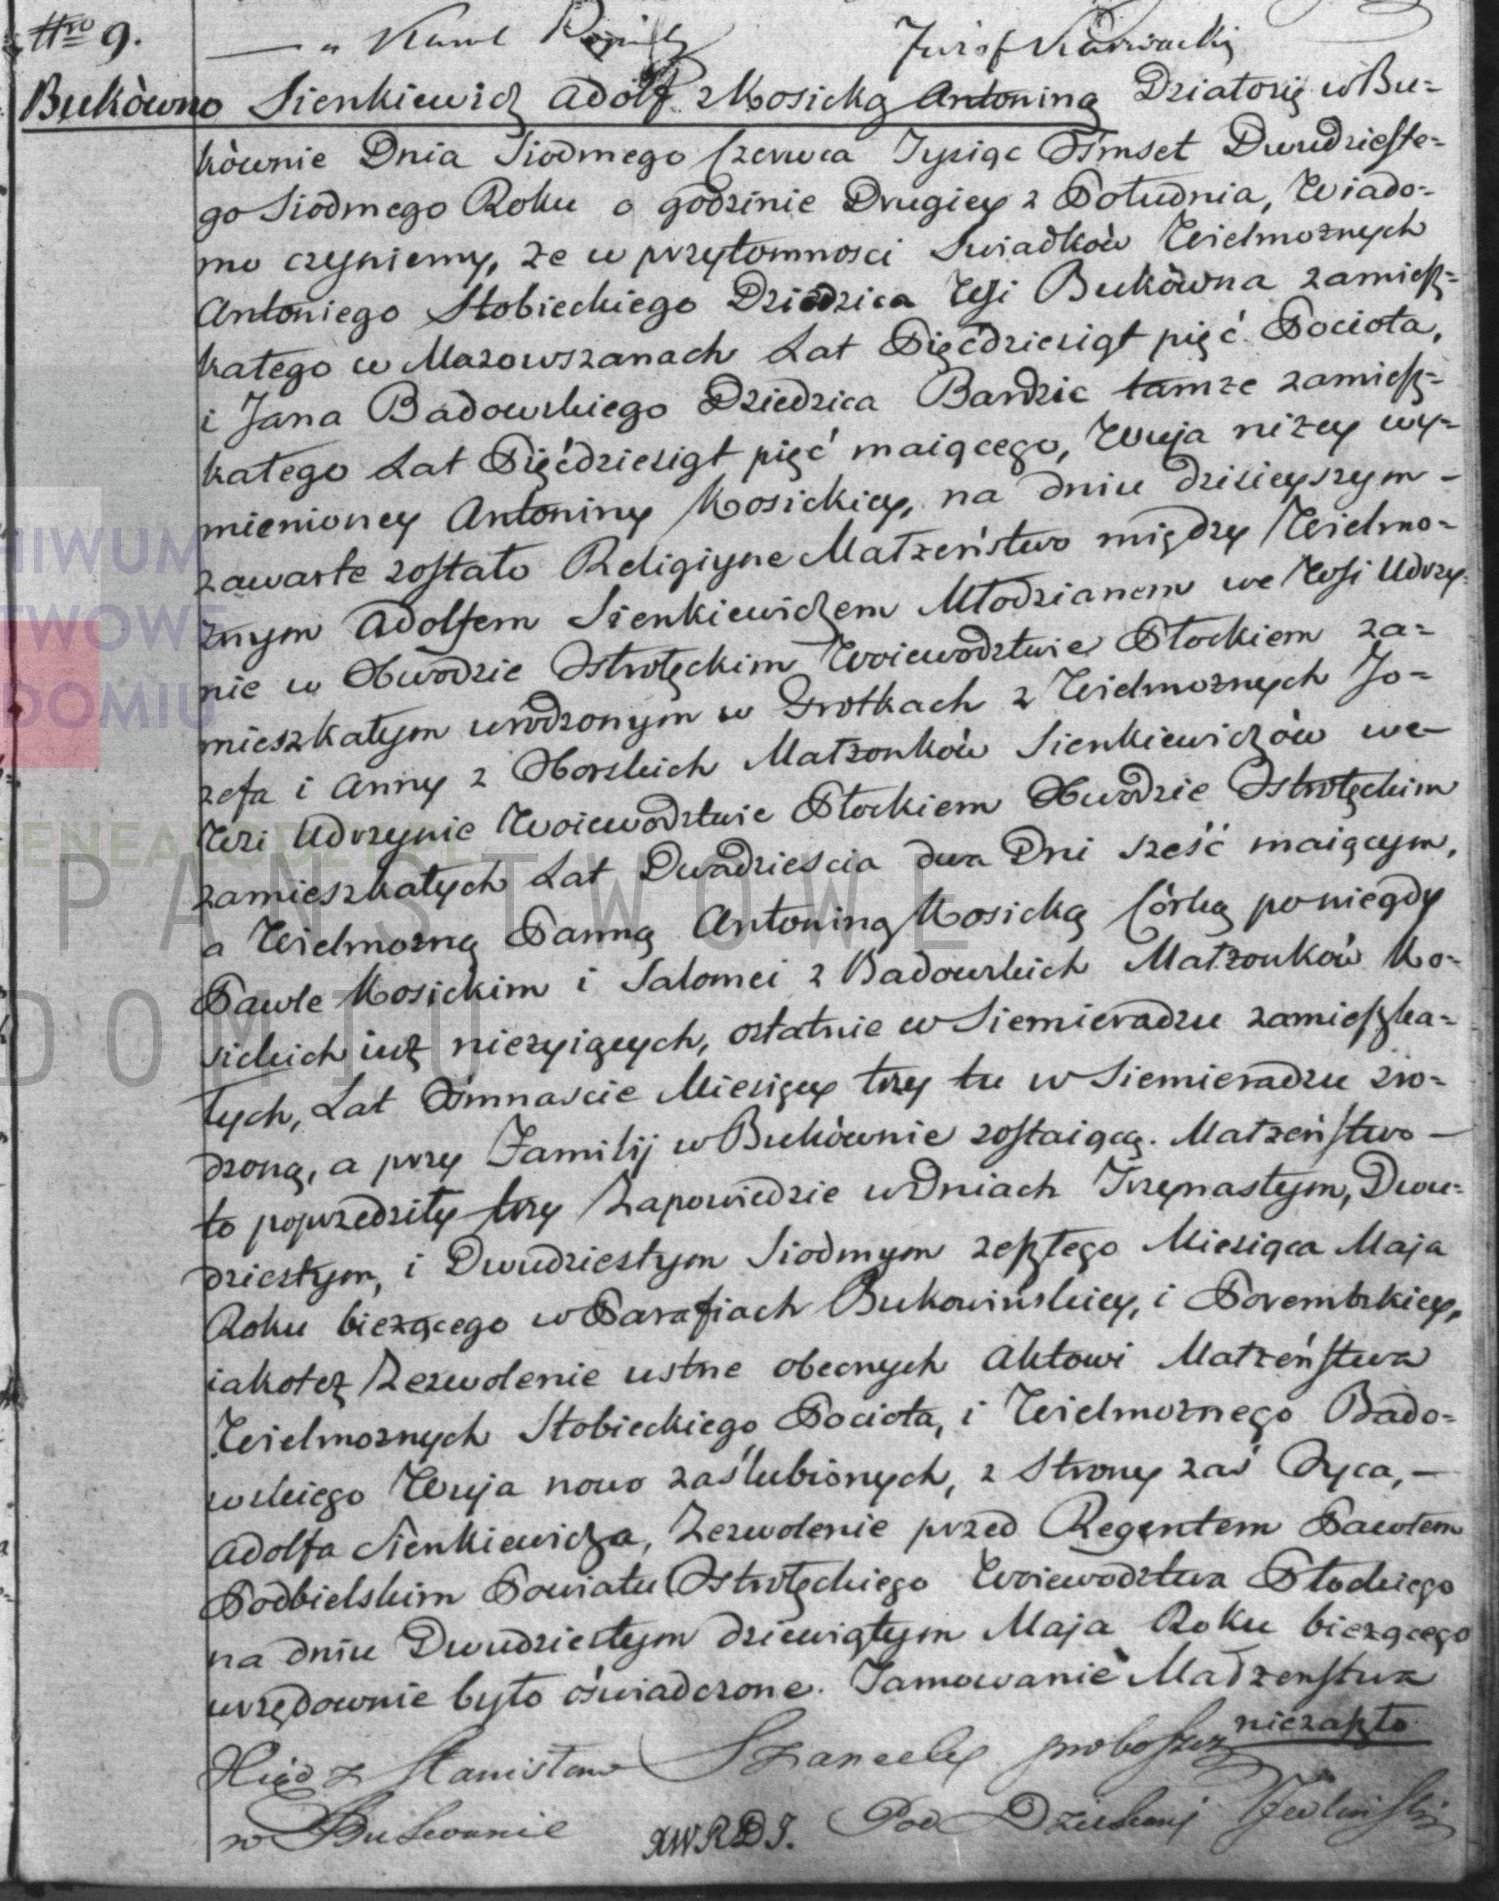 Nro 9.
Józef Karwacki
Bukòwno Sienkiewicz Adolf z Kosicką Antoniną Działosię w Bu=
kòwnie Dnia Siodmego Czerwca Tysiąc Osmset Dwudzieste=
go Siodmego Roku o godzinie Drugiey z Południa, Wiado=
mo czyniemy, że w przytomnosci Swiadków Wielmoznych
Antoniego Słobieckiego Dziedzica Wsi Bukòwna zamiesz=
kałego w Mazowszanach Lat Pięćdziesiąt pięć Pocioła,
i Jana Badowskiego Dziedzica Bardzic tamze zamiesz=
kałego Lat Pięćdziesiąt pięć maiącego, Wuja niżey wy=
mienioney Antoniny Kosickiey, na dniu dzisieyszym -
zawarte zostało Religiyne Małżeństwo między Wielmo=
żnym Adolfem Sienkiewiczem Młodzianem we Wsi Udrzy=
nie w Obwodzie Ostrołęckim Woiewodztwie Płockiem za=
mieszkałym urodzonym w Grotkach z Wielmoznych Jo=
zefa i Anny z Oborskich Małżonków Sienkiewiczów we-
Wsi Udrzynie Woiewodztwie Płockiem Obwodzie Ostrołęckim
zamieszkałych Lat Dwadziescia dwa Dni sześć maiącym,
a Wielmozną Panną Antoniną Kosicką Córką poniegdy
Pawle Kosickim i Salomei z Badowskich Małżonków Ko=
sickich iuż nieżyiących, ostatnie w Siemieradzu zamieszka=
łych, Lat Osmnascie Miesięcy trzy tu w Siemieradzu zro=
dzoną, a przy Familij w Bukòwnie zostaiącą. Małżeństwo -
to poprzedziły trzy Zapowiedzie w Dniach Trzynastym, Dwu=
dziestym, i Dwudziestym Siodmym zeszłego Miesiąca Maja
Roku bieżącego w Parafiach Bukowińskiey, i Porembskiey,
iakoteż Zezwolenie ustne obecnych Aktowi Małżeństwa
Wielmoznych Słobieckiego Pocioła, i Wielmoznego Bado=
wskiego Wuja nowo zaślubionych, z Strony zaś Oyca, -
Adolfa Sienkiewicza, Zezwolenie przed Regentem Pawłem
Podbielskim Powiatu Ostrołęckiego Woiewodztwa Płockiego
na dniu Dwudziestym dziewiątym Maja Roku bieżącego
urzędownie było óswiadczone. Tamowanie Małżenstwa
niezaszło
Xiądz Stanisław proboszcz
w Bukownie XWRDI. Pod Dziekani
ARCHIWUM
PAŃSTWOWE
RADOMIU